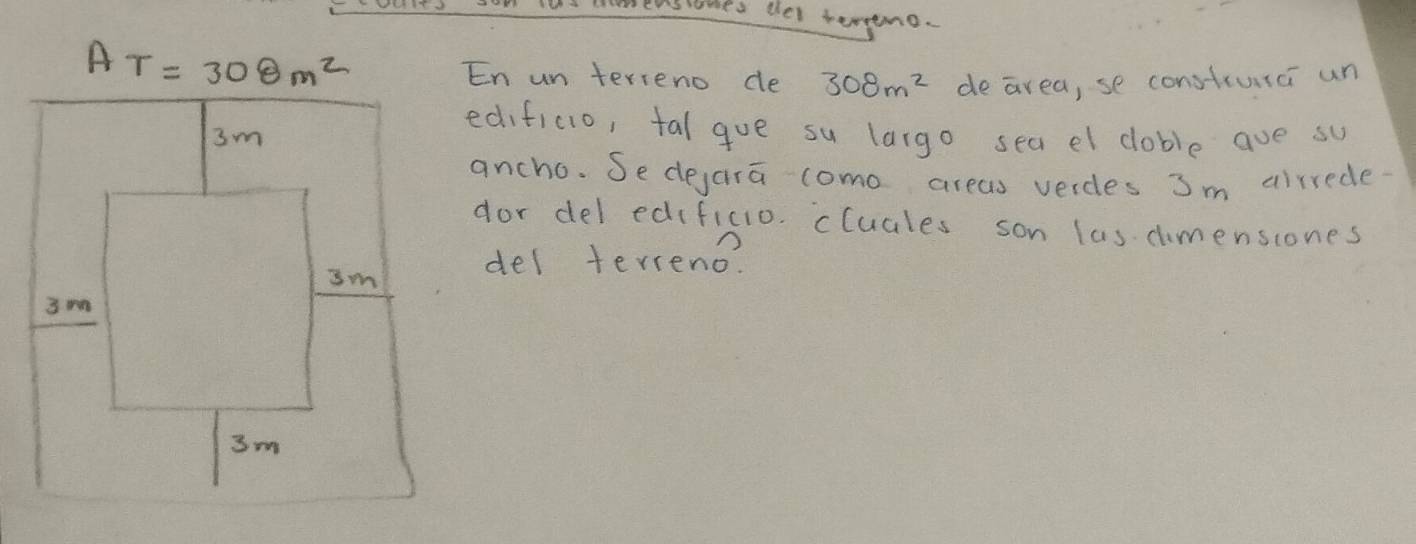 son las dimensiones del terreno.
AT = 308m²
En un terreno de 308m² de área, se construirá un
edificio, tal que su largo sea el doble que su
ancho. Se dejará como areas verdes 3m alrrede-
dor del edificio. ¿Cuales son las dimensiones
del terreno?
3m
3m
3m
3m